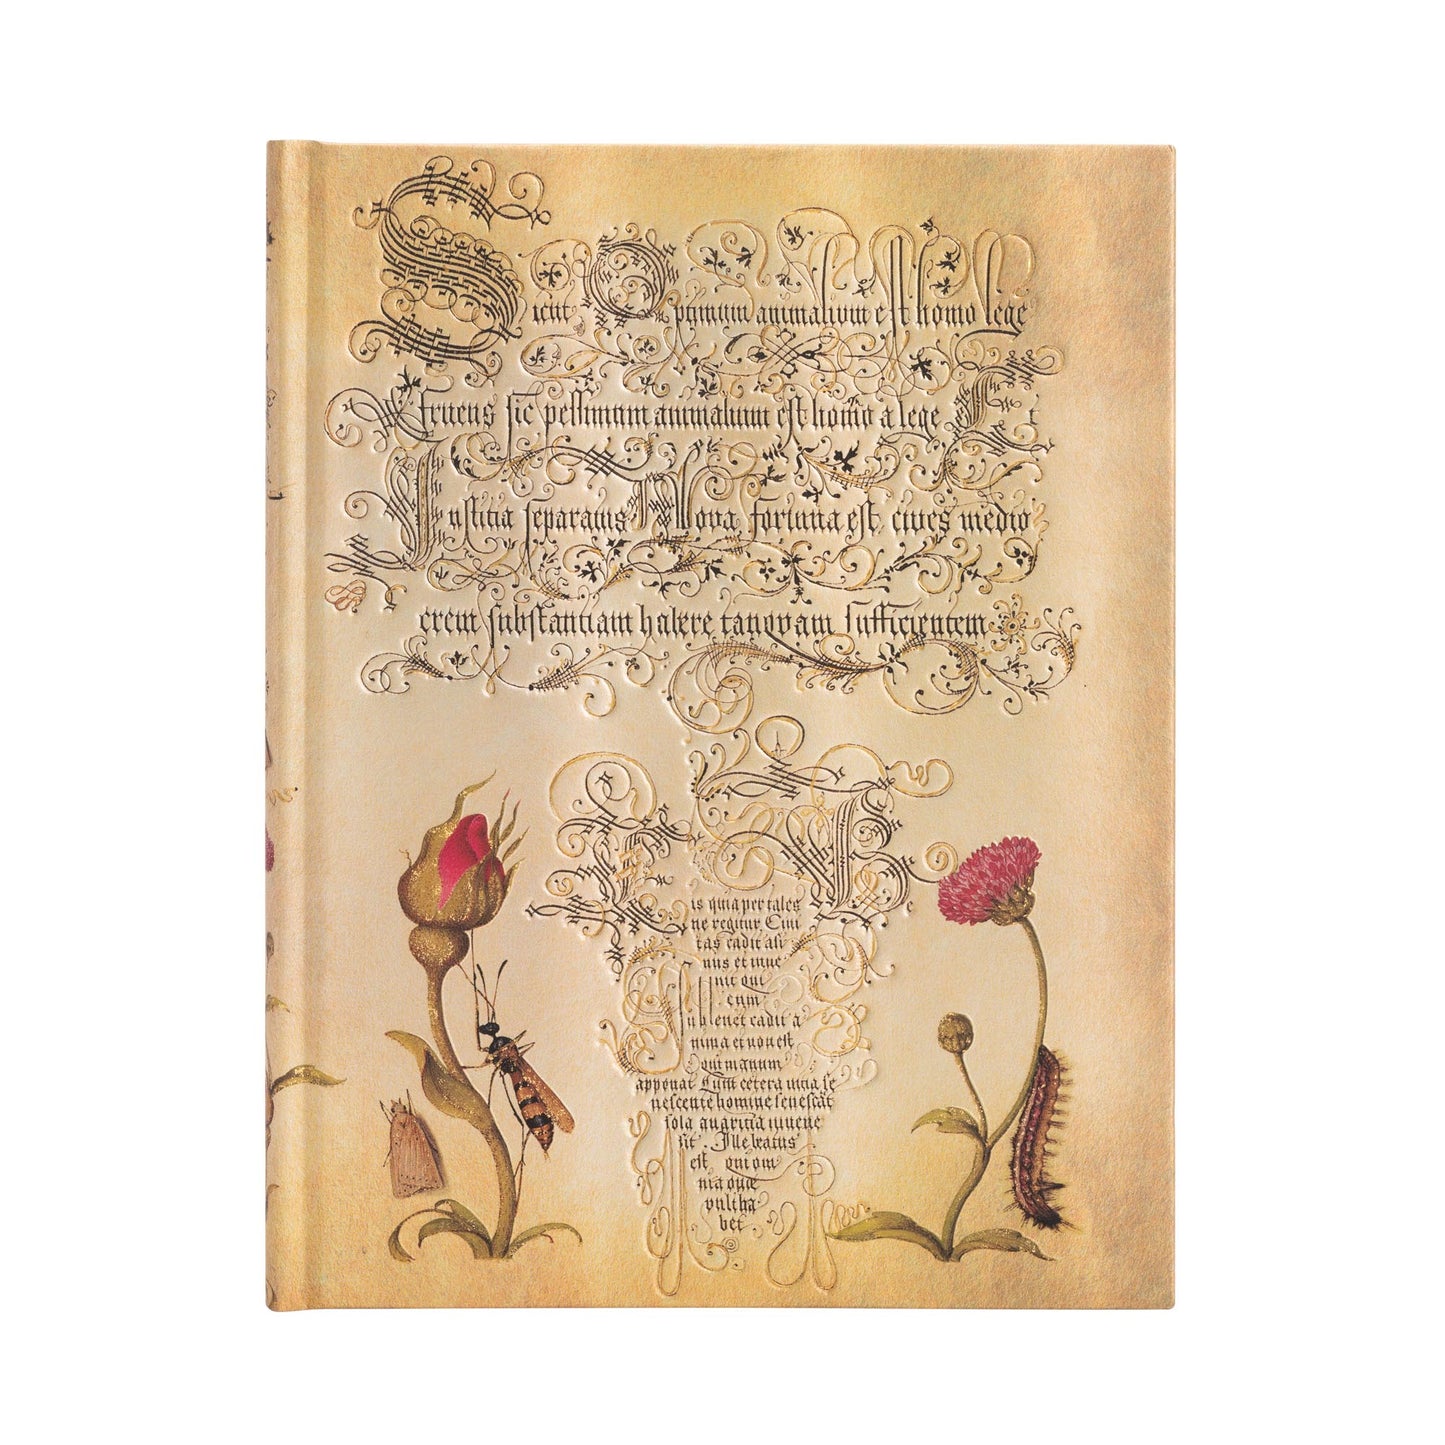 Sicut Optimum animalium est homo lege
fruens sic pessimum animalium est homo a lege Et
Iustitia separatus Nova fortuna est cives medio
crem substantiam habere tanquam sufficientem
is quia per tales
ne regitur Civi
tas cadit asi
nus et inve
nit qui
cum
sublevet cadit a
nima et non est
qui manum
apponat Cum cetera vitia se
nescente homine senescāt
sola avaritia iuvene
sit. Ille beatus
est, qui om
nia quæ
vult ha
bet